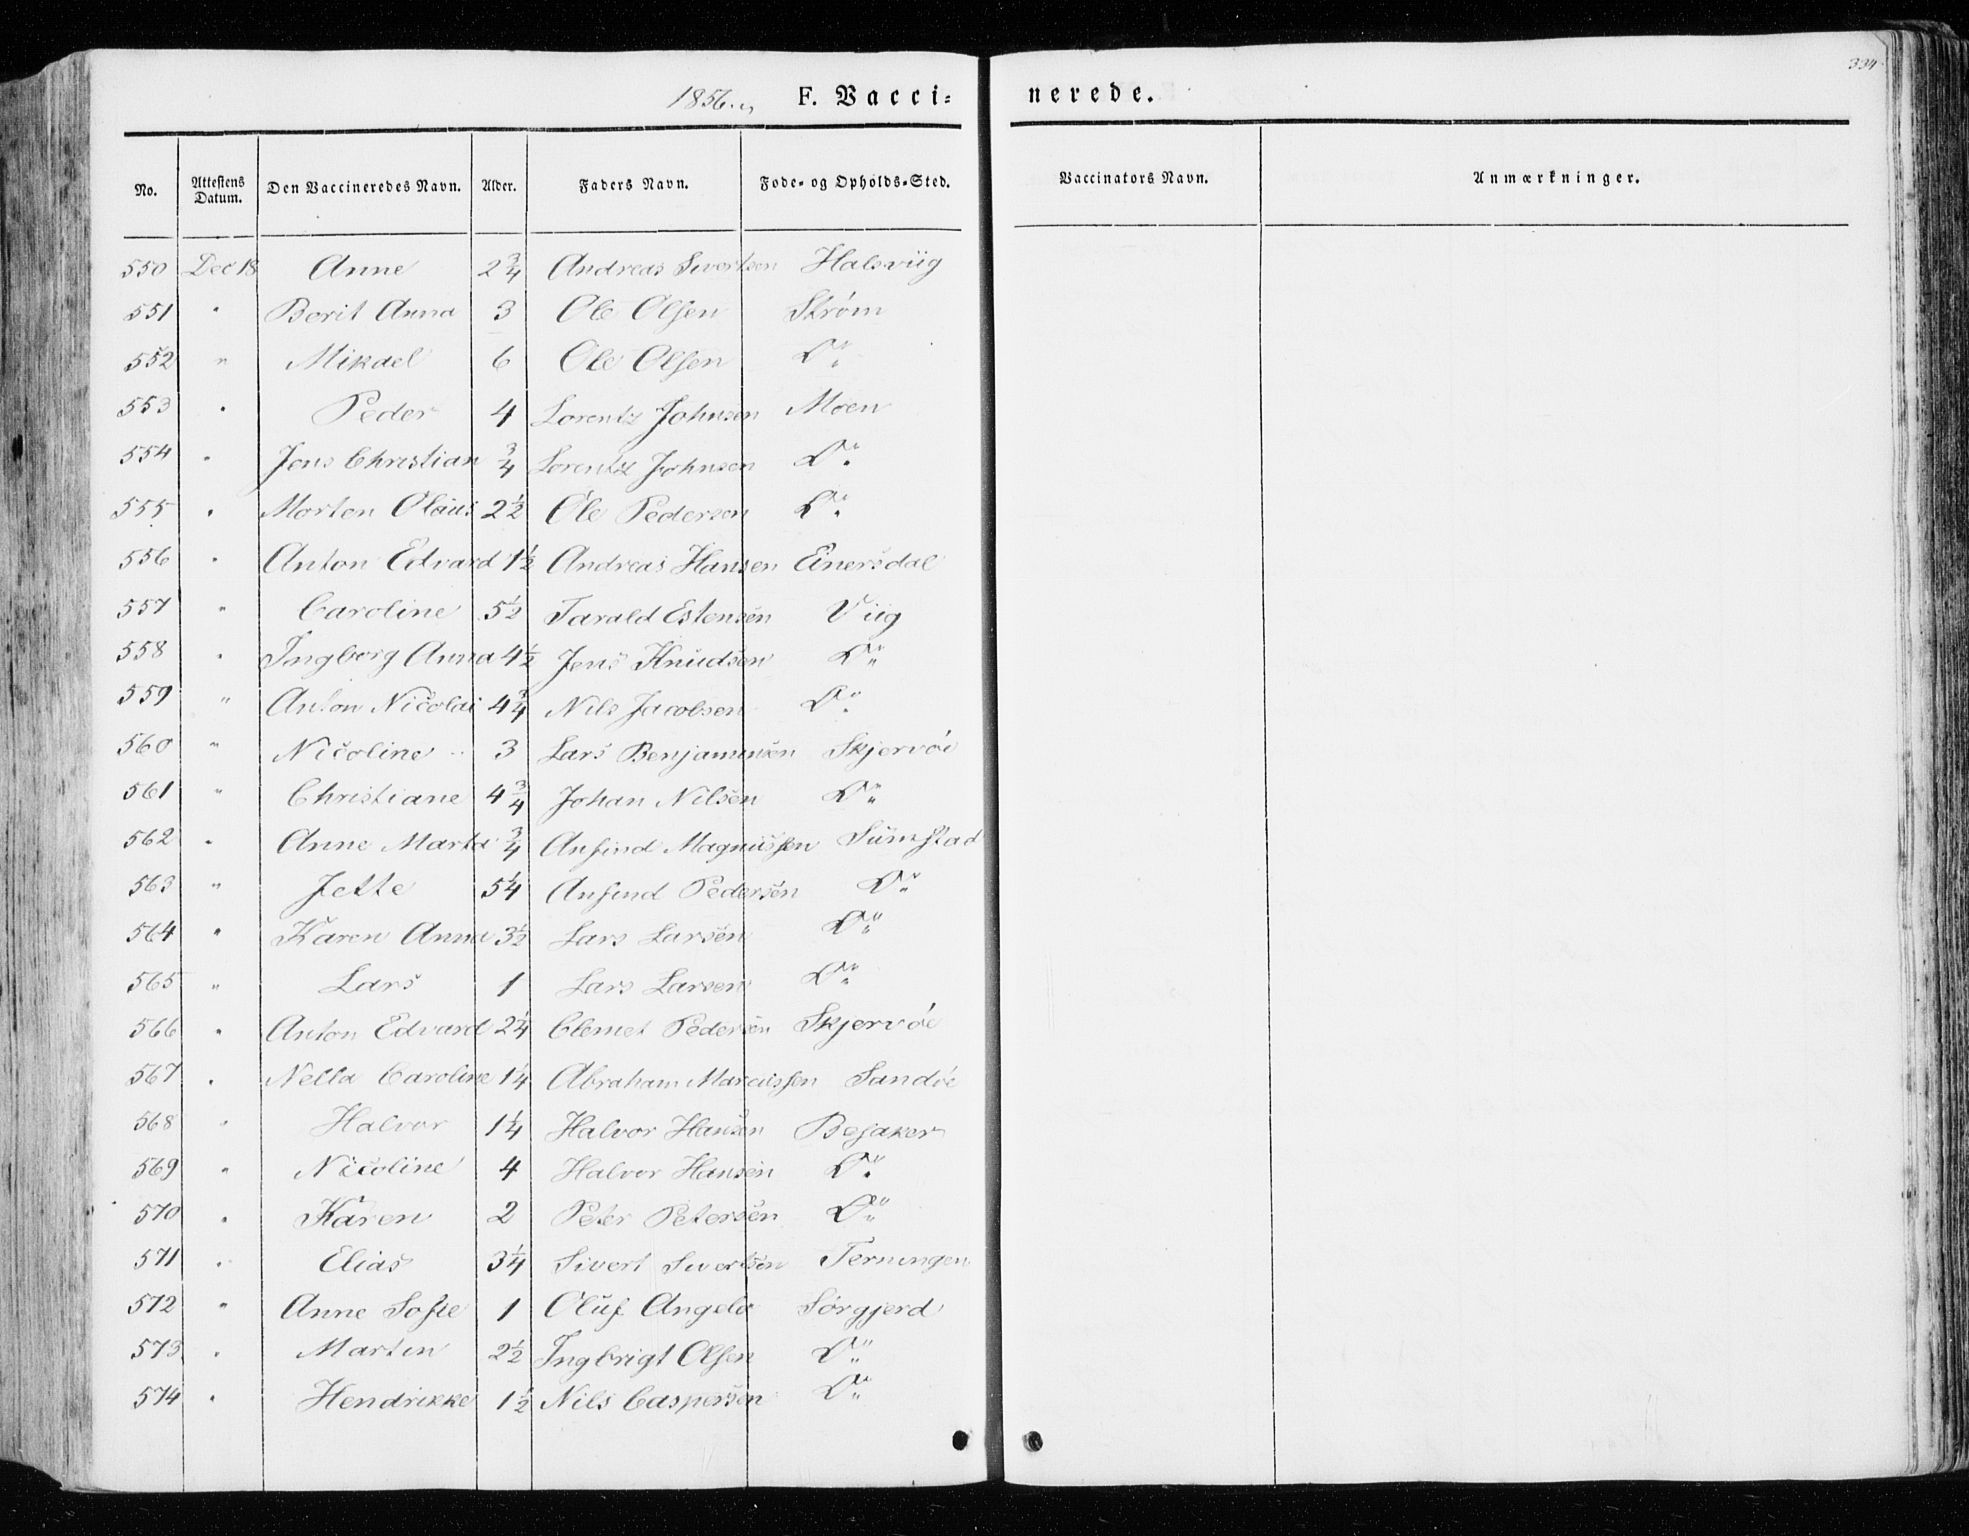 334
1856. F. Vacci= nerede.
No. Attestens Datum. Den Vaccineredes Navn. Alder. Faders Navn. Føde- og Opholds-Sted. Vaccinators Navn. Anmærkninger.
550 Dec 18 Anne 2 3/4 Andreas Sivertsen Halsviig
551 " Berit Anna 3 Ole Olsen Strøm
552 " Mikael 6 Ole Olsen Do
553 " Peder 4 Lorentz Johnsen Moen
554 " Jens Christian 3/4 Lorentz Johnsen Do
555 " Morten Olaus 2 1/2 Ole Pedersen Do
556 " Anton Edvard 1 1/2 Andreas Hansen Einersdal
557 " Caroline 5 1/2 Tarald Estensen Viig
558 " Ingborg Anna 4 1/2 Jens Knudsen Do
559 " Anton Nicolai 4 3/4 Nils Jacobsen Do
560 " Nicoline 3 Lars Benjaminsen Skjervöe
561 " Christiane 4 3/4 Johan Nilsen Do
562 " Anne Marta 3/4 Anfind Magnussen Sumstad
563 " Jette 5 1/4 Anfind Pedersen Do
564 " Karen Anna 3 1/2 Lars Larsen Do
565 " Lars 1 Lars Larsen Do
566 " Anton Edvard 2 1/4 Clemet Pedersen Skjervöe
567 " Nella Caroline 1 1/4 Abraham Marcussen Sandöe
568 " Halvor 1 1/4 Halvor Hansen Besaker
569 " Nicoline 4 Halvor Hansen Do
570 " Karen 2 Peter Petersen Do
571 " Elias 3 1/4 Sivert Sivertsen Terningen
572 " Anne Sofie 1 Oluf Angelo Sörgjerd
573 " Martin 2 1/2 Ingbrigt Olsen Do
574 " Hendrikke 1 1/2 Nils Caspersen Do